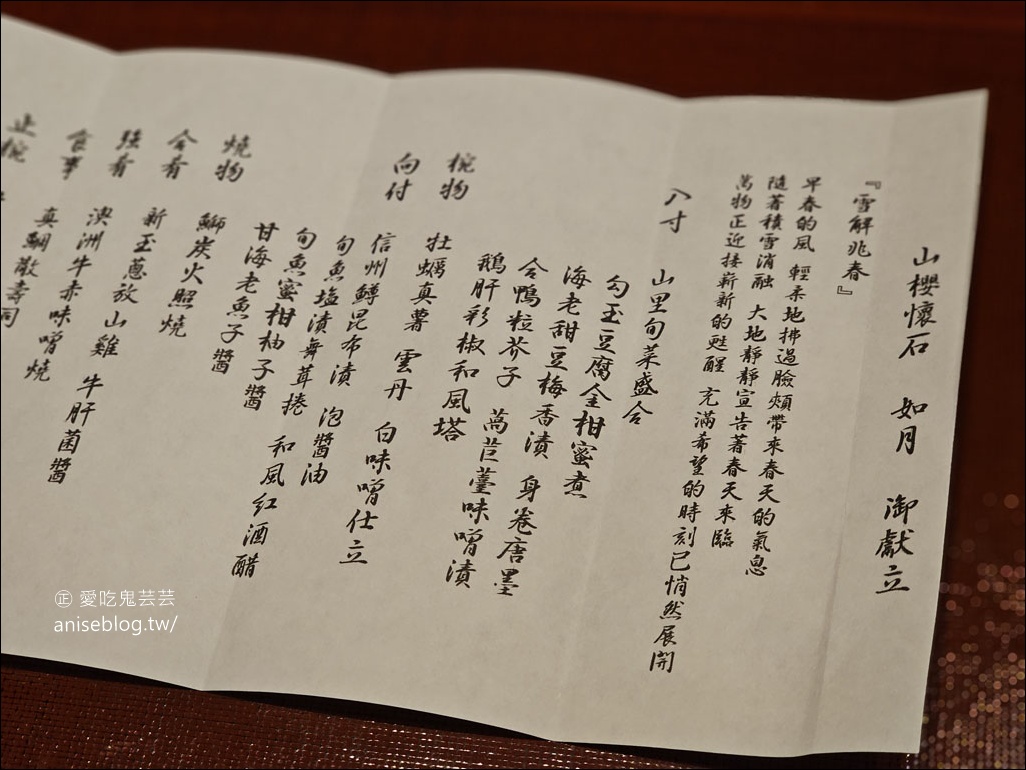 山櫻懷石 如月 御獻立
『雪解兆春』
早春的風 輕柔地拂過臉頰帶來春天的氣息
隨著積雪消融 大地靜靜宣告著春天來臨
萬物正近接嶄新的甦醒 充滿希望的時刻已悄然展開
八寸
山里旬菜盛合
勾玉豆腐金柑蜜煮
海老甜豆梅香漬 身卷唐墨
合鴨粒芥子 萵苣薹味噌漬
鵝肝彩椒和風塔
椀物
牡蠣真薯 雲丹 白味噌仕立
向付
信州鱒昆布漬 泡醬油
旬魚塩漬舞茸捲 和風紅酒醋
旬魚蜜柑柚子醬
甘海老魚子醬
燒物
鰤炭火照燒
合肴
新玉蔥放山雞 牛肝菌醬
強肴
澳洲牛赤味噌燒
食事
真鯛散壽司
止椀
㊣ 愛吃鬼芸芸
aniseblog.tw/